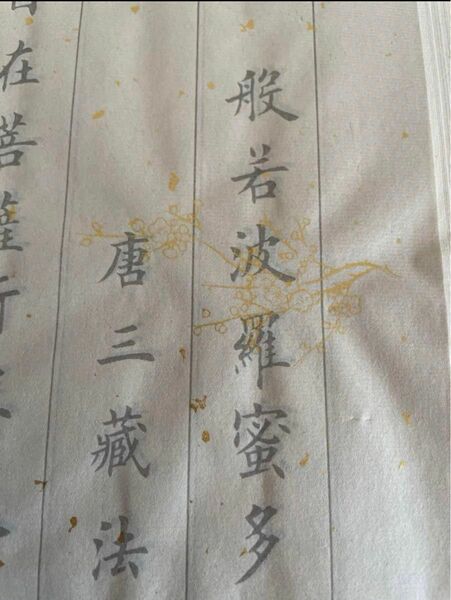 般若波羅蜜多
唐三藏法
在菩薩行